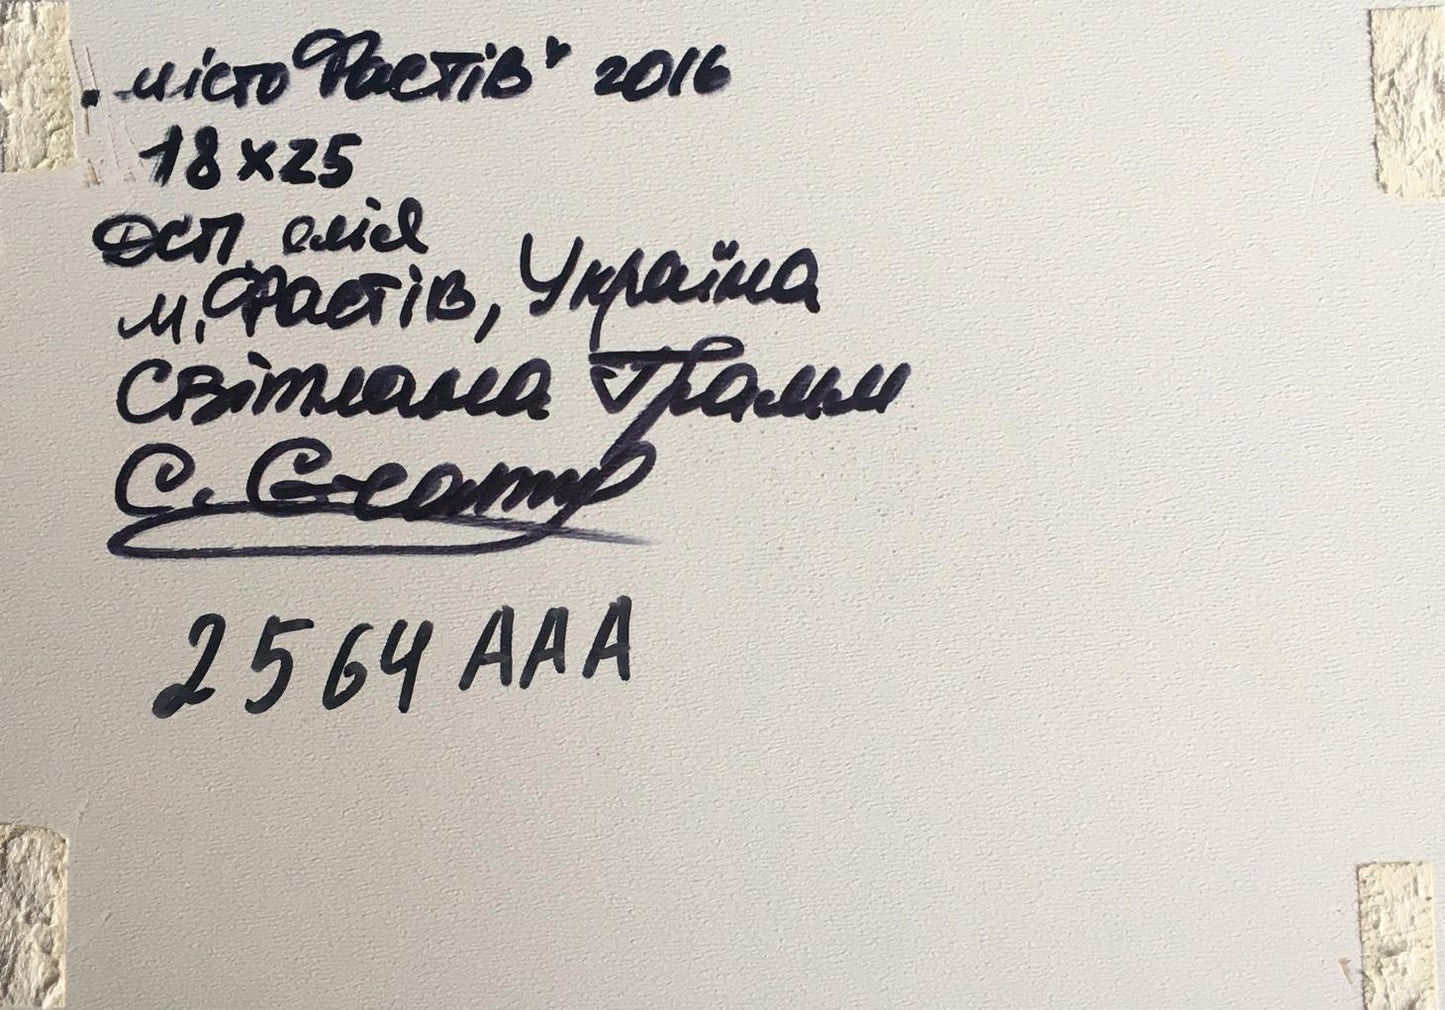 "місто Фастів" 2016
18х25
ДСП, олія
м. Фастів, Україна
Світлана
С.
2564 ААА